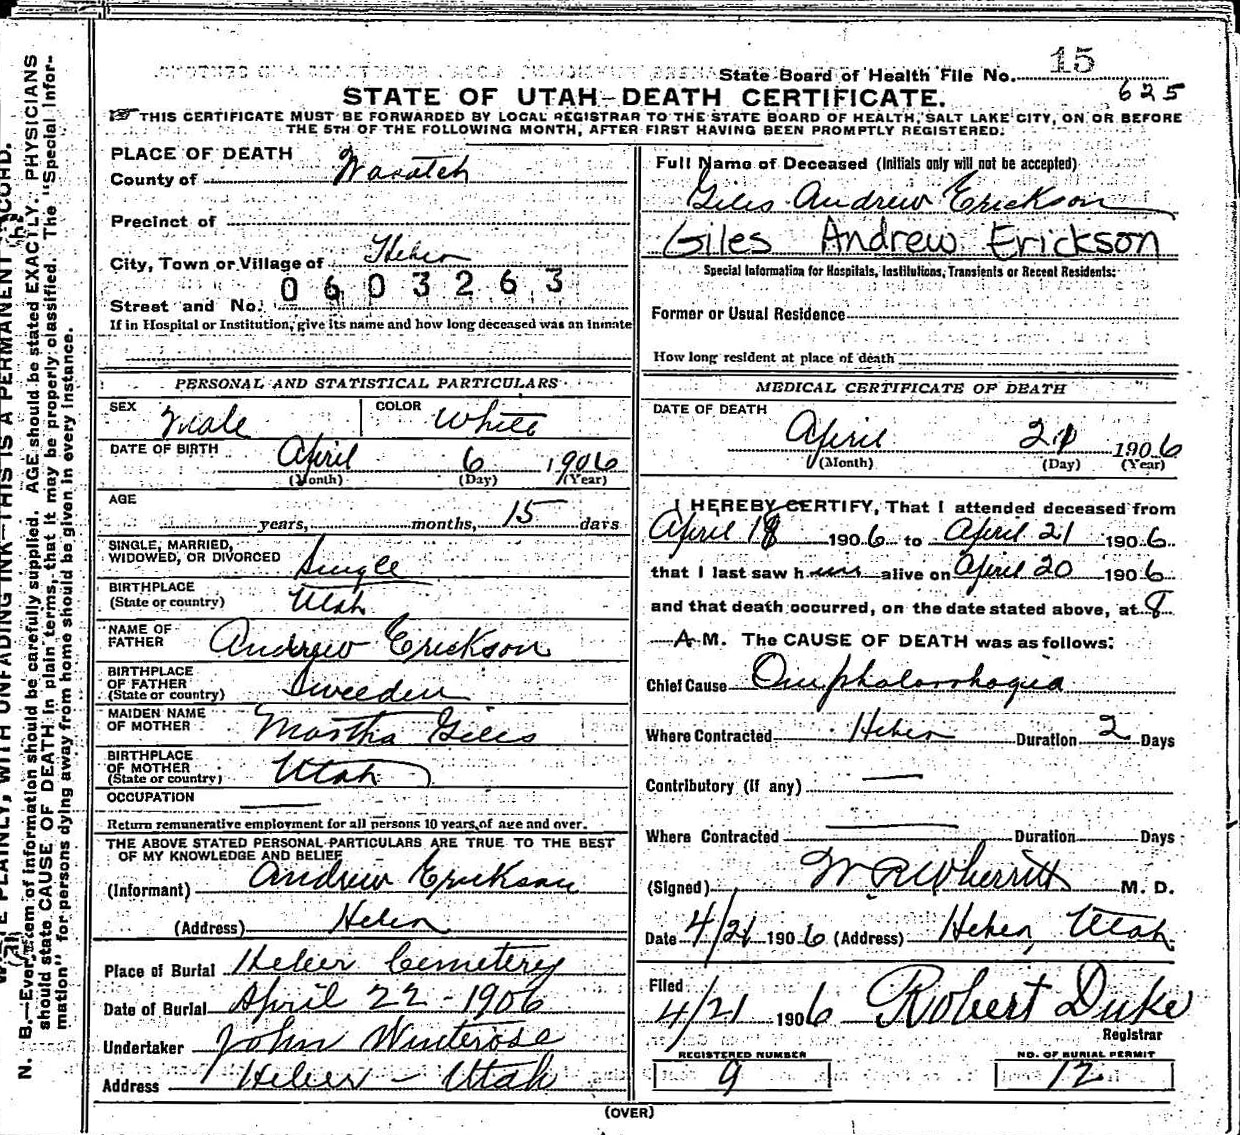 State Board of Health File No. 15
625
STATE OF UTAH—DEATH CERTIFICATE.
THIS CERTIFICATE MUST BE FORWARDED BY LOCAL REGISTRAR TO THE STATE BOARD OF HEALTH, SALT LAKE CITY, ON OR BEFORE
THE 5TH OF THE FOLLOWING MONTH, AFTER FIRST HAVING BEEN PROMPTLY REGISTERED.
PLACE OF DEATH
County of Wasatch
Precinct of
City, Town or Village of Heber
0603263
Street and No.
If in Hospital or Institution, give its name and how long deceased was an inmate
PERSONAL AND STATISTICAL PARTICULARS
SEX Male COLOR White
DATE OF BIRTH April 6 1906
(Month) (Day) (Year)
AGE
years, months, 15 days
SINGLE, MARRIED,
WIDOWED, OR DIVORCED Single
BIRTHPLACE
(State or country) Utah
NAME OF
FATHER Andrew Erickson
BIRTHPLACE
OF FATHER
(State or country) Sweeden
MAIDEN NAME
OF MOTHER Martha Giles
BIRTHPLACE
OF MOTHER
(State or country) Utah
OCCUPATION
Return remunerative employment for all persons 10 years of age and over.
THE ABOVE STATED PERSONAL PARTICULARS ARE TRUE TO THE BEST
OF MY KNOWLEDGE AND BELIEF
(Informant) Andrew Erickson
(Address) Heber
Place of Burial Heber Cemetery
Date of Burial April 22 - 1906
Undertaker John Winterose
Address Heber - Utah
Full Name of Deceased (Initials only will not be accepted)
Giles Andrew Erickson
Giles Andrew Erickson
Special Information for Hospitals, Institutions, Transients or Recent Residents:
Former or Usual Residence
How long resident at place of death
MEDICAL CERTIFICATE OF DEATH
DATE OF DEATH
April 21 1906
(Month) (Day) (Year)
I HEREBY CERTIFY, That I attended deceased from
April 18 1906 to April 21 1906
that I last saw him alive on April 20 1906
and that death occurred, on the date stated above, at 8
A M. The CAUSE OF DEATH was as follows:
Chief Cause Omphalorrhagia
Where Contracted Heber Duration 2 Days
Contributory (if any)
Where Contracted Duration Days
(Signed) W R Wherritt M. D.
Date 4/21 1906 (Address) Heber, Utah
Filed
4/21 1906 Robert Duke
Registrar
REGISTERED NUMBER
9
NO. OF BURIAL PERMIT
12
(OVER)
PLAINLY, WITH UNFADING INK—THIS IS A PERMANENT
N. B.—Every item of information should be carefully supplied. AGE should be stated EXACTLY. PHYSICIANS
should state CAUSE OF DEATH in plain terms, that it may be properly classified. The "Special Infor-
mation" for persons dying away from home should be given in every instance.